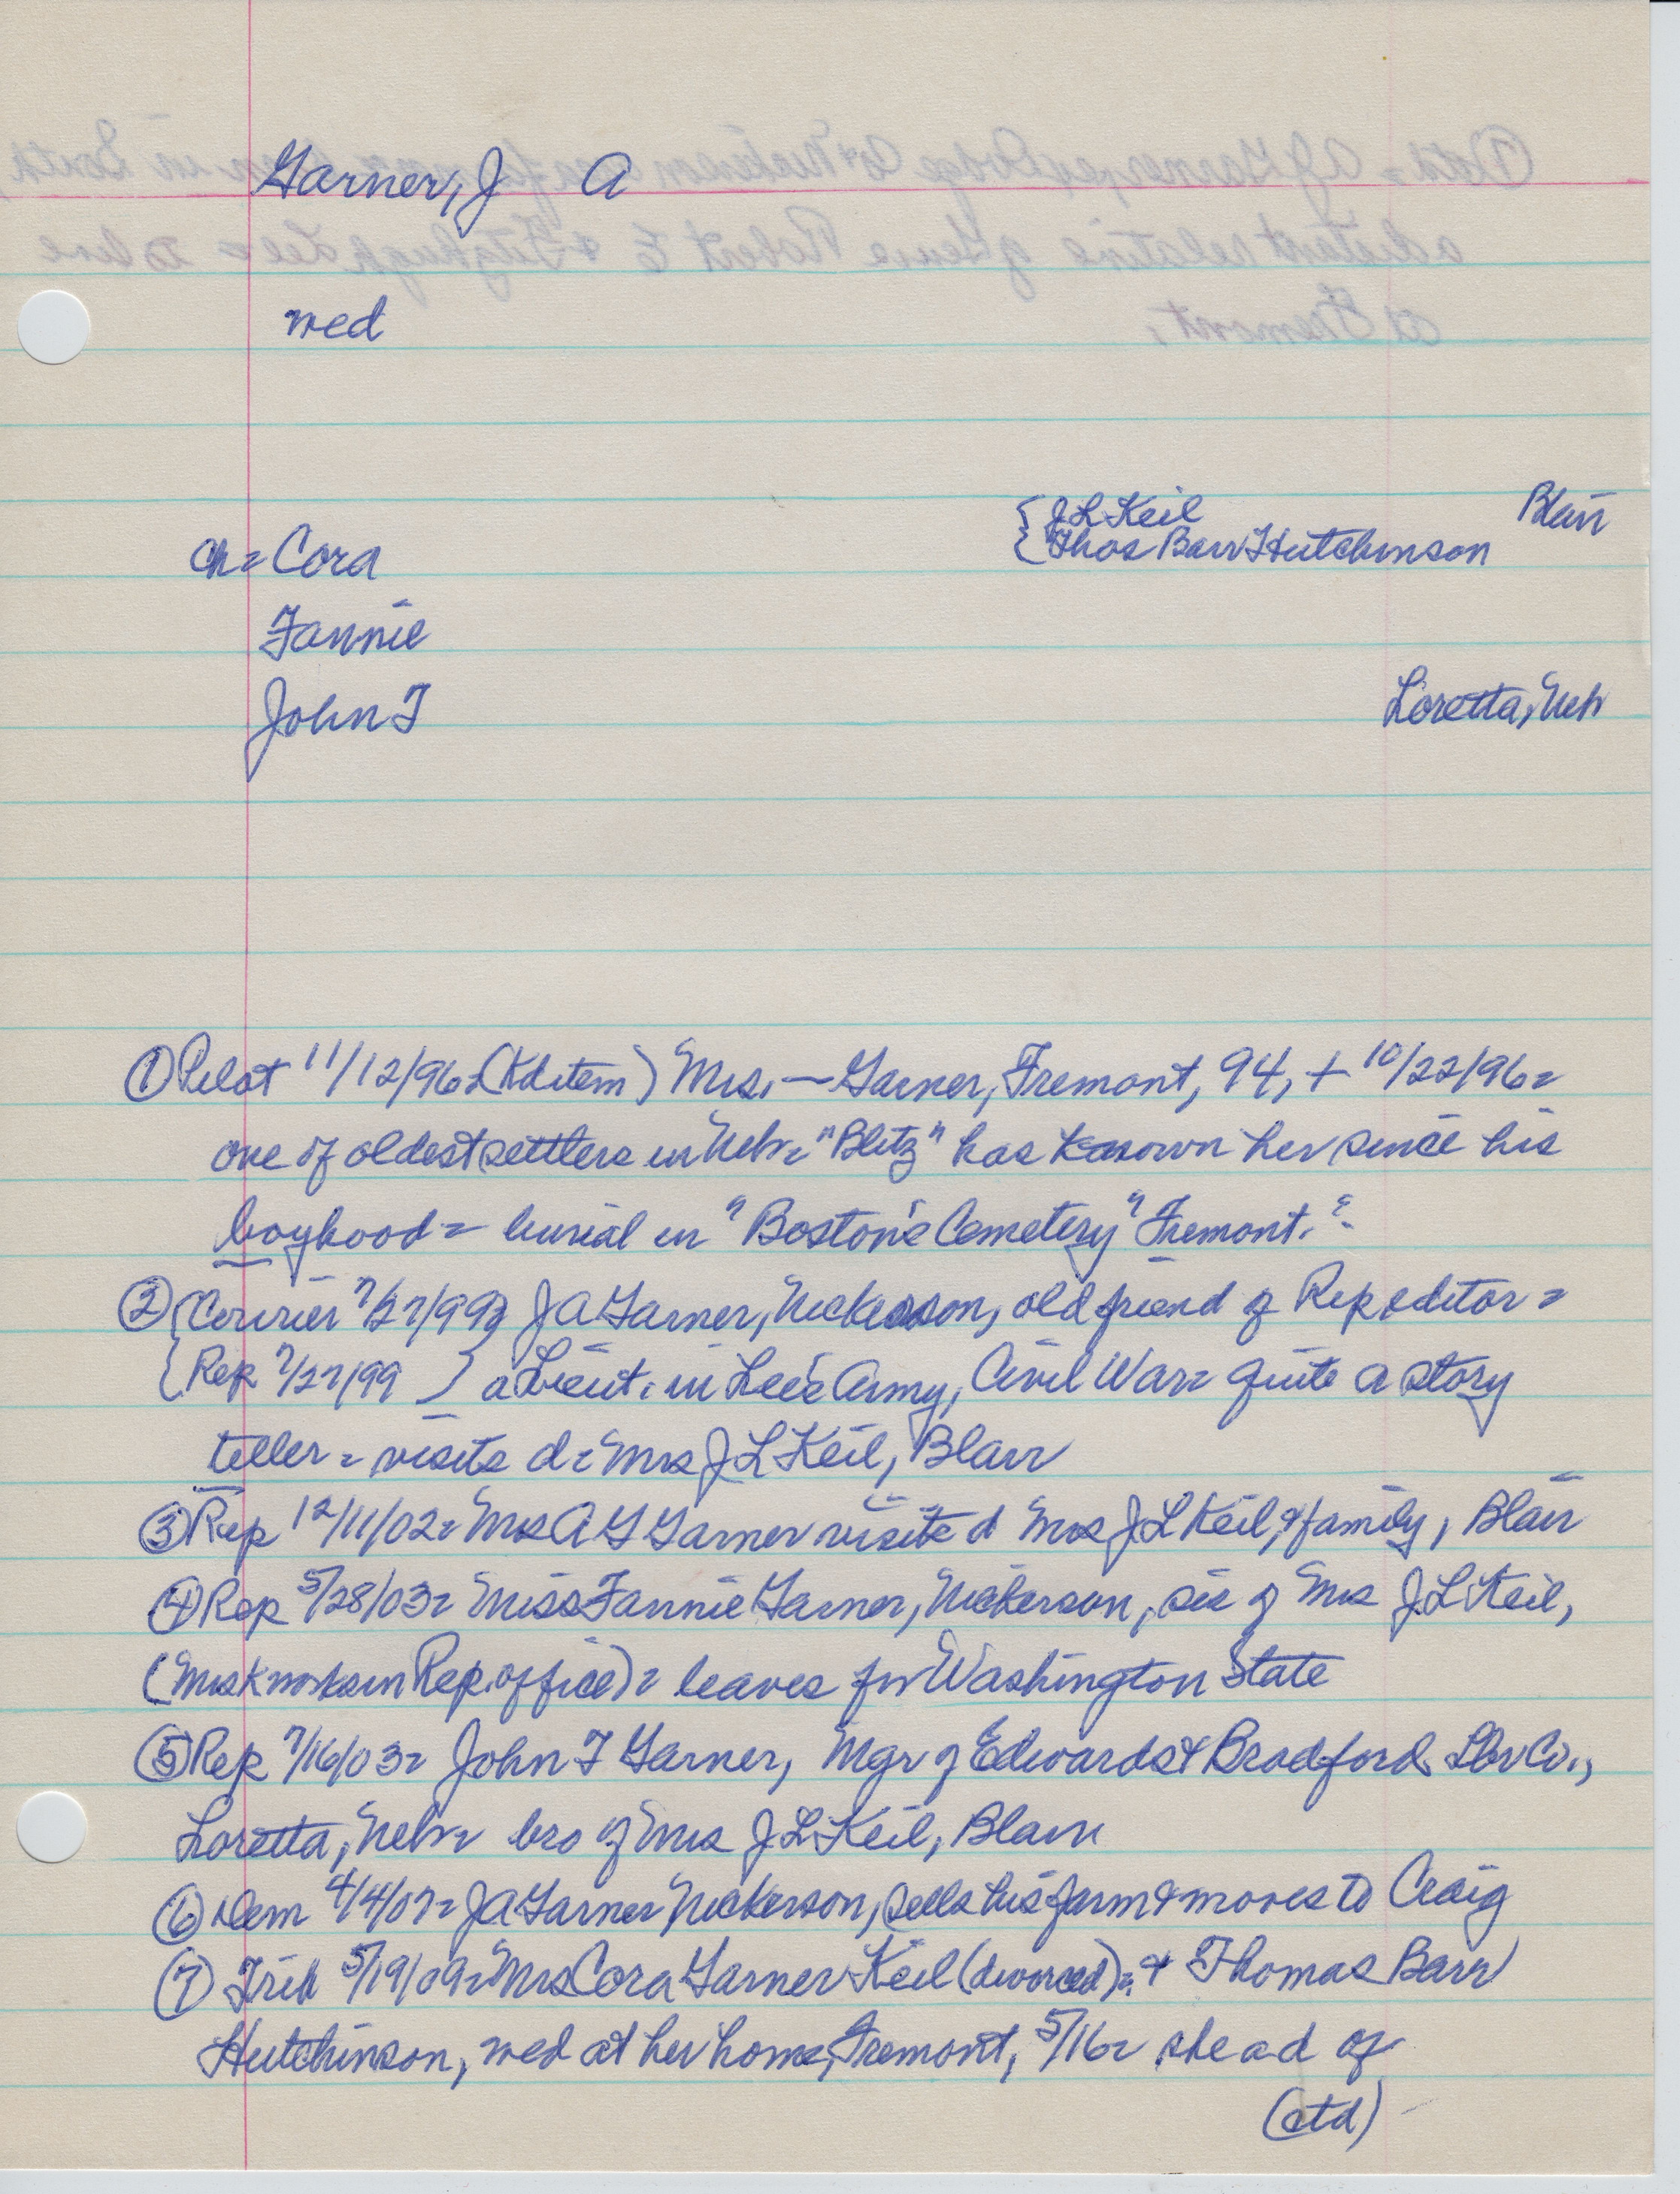 Garner, J A
wed
{ J L Keil Blair
ch = Cora { Thos Barr Hutchinson
Fannie
John F Loretta, Neb
① Pilot 11/12/96 = (Kd item) Mrs. — Garner, Fremont, 94, + 10/22/96 =
one of oldest settlers in Neb = "Blitz" has known her since his
boyhood = burial in "Boston's Cemetery" Fremont."
② { Courier 7/27/99 } J A Garner, Nickerson, old friend of Rep editor =
{ Rep 7/27/99 } a Lieut. in Lee's Army, Civil War = quite a story
teller = visits d = Mrs J L Keil, Blair
③ Rep 12/11/02 = Mrs A G Garner visits d Mrs J L Keil, & family, Blair
④ Rep 5/28/03 = Miss Fannie Garner, Nickerson, sis of Mrs J L Keil,
(Mrs K works in Rep. office) = leaves for Washington State
⑤ Rep 7/16/03 = John F Garner, Mgr of Edwards & Bradford Lbr Co.,
Loretta, Neb = bro of Mrs J L Keil, Blair
⑥ Dem 4/4/07 = J A Garner Nickerson, sells his farm & moves to Craig
⑦ Trib 5/19/09 = Mrs Cora Garner Keil (divorced) = & Thomas Barr
Hutchinson, wed at her home, Fremont, 5/16 = she ad of
(ctd)